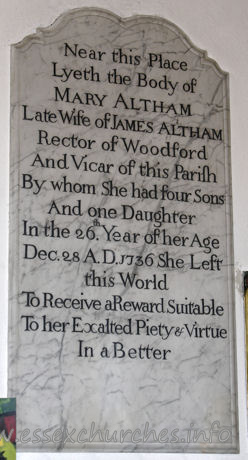 Near this Place
Lyeth the Body of
MARY ALTHAM
Late Wife of JAMES ALTHAM
Rector of Woodford
And Vicar of this Pariſh
By whom She had four Sons
And one Daughter
In the 26.th Year of her Age
Dec. 28 A.D. 1736 She Left
this World
To Receive a Reward Suitable
To her Exalted Piety & Virtue
In a Better
www.essexchurches.info